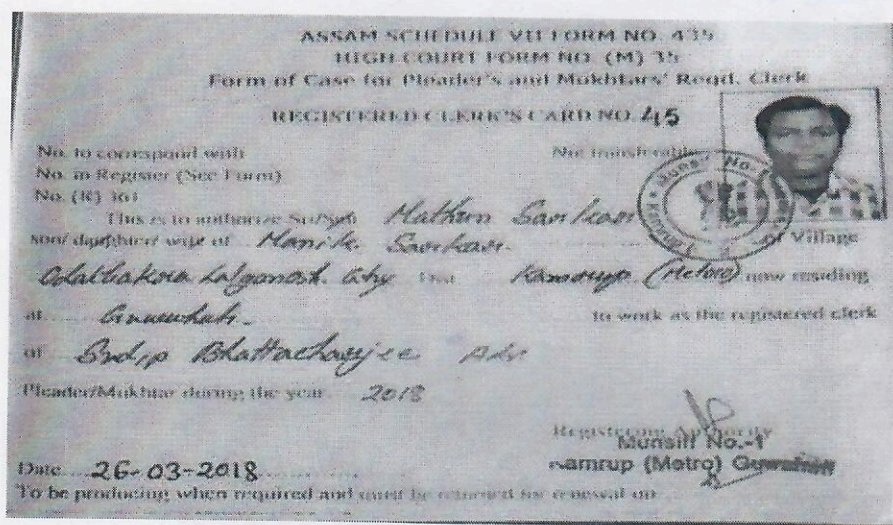 ASSAM SCHEDULE VII FORM NO. 435
HIGH COURT FORM NO. (M) 35
Form of Case for Pleader's and Mokhtars' Regd. Clerk
REGISTERED CLERK'S CARD NO. 45
No. to correspond with Not transferable
No. in Register (See Form)
No. (R) 361
This is to authorize Sarkar
son/ daughter/ wife of Manik Sarkar of Village
Odalbakra Lalganesh Ghy Dist Kamrup (Metro) now residing
at Guwahati to work as the registered clerk
of Bhattacharjee Adv
Pleader/Mukhtar during the year 2018
Registering Authority
Munsiff No.-1
Kamrup (Metro) Guwahati
Date 26-03-2018
To be producing when required and must be returned for renewal on